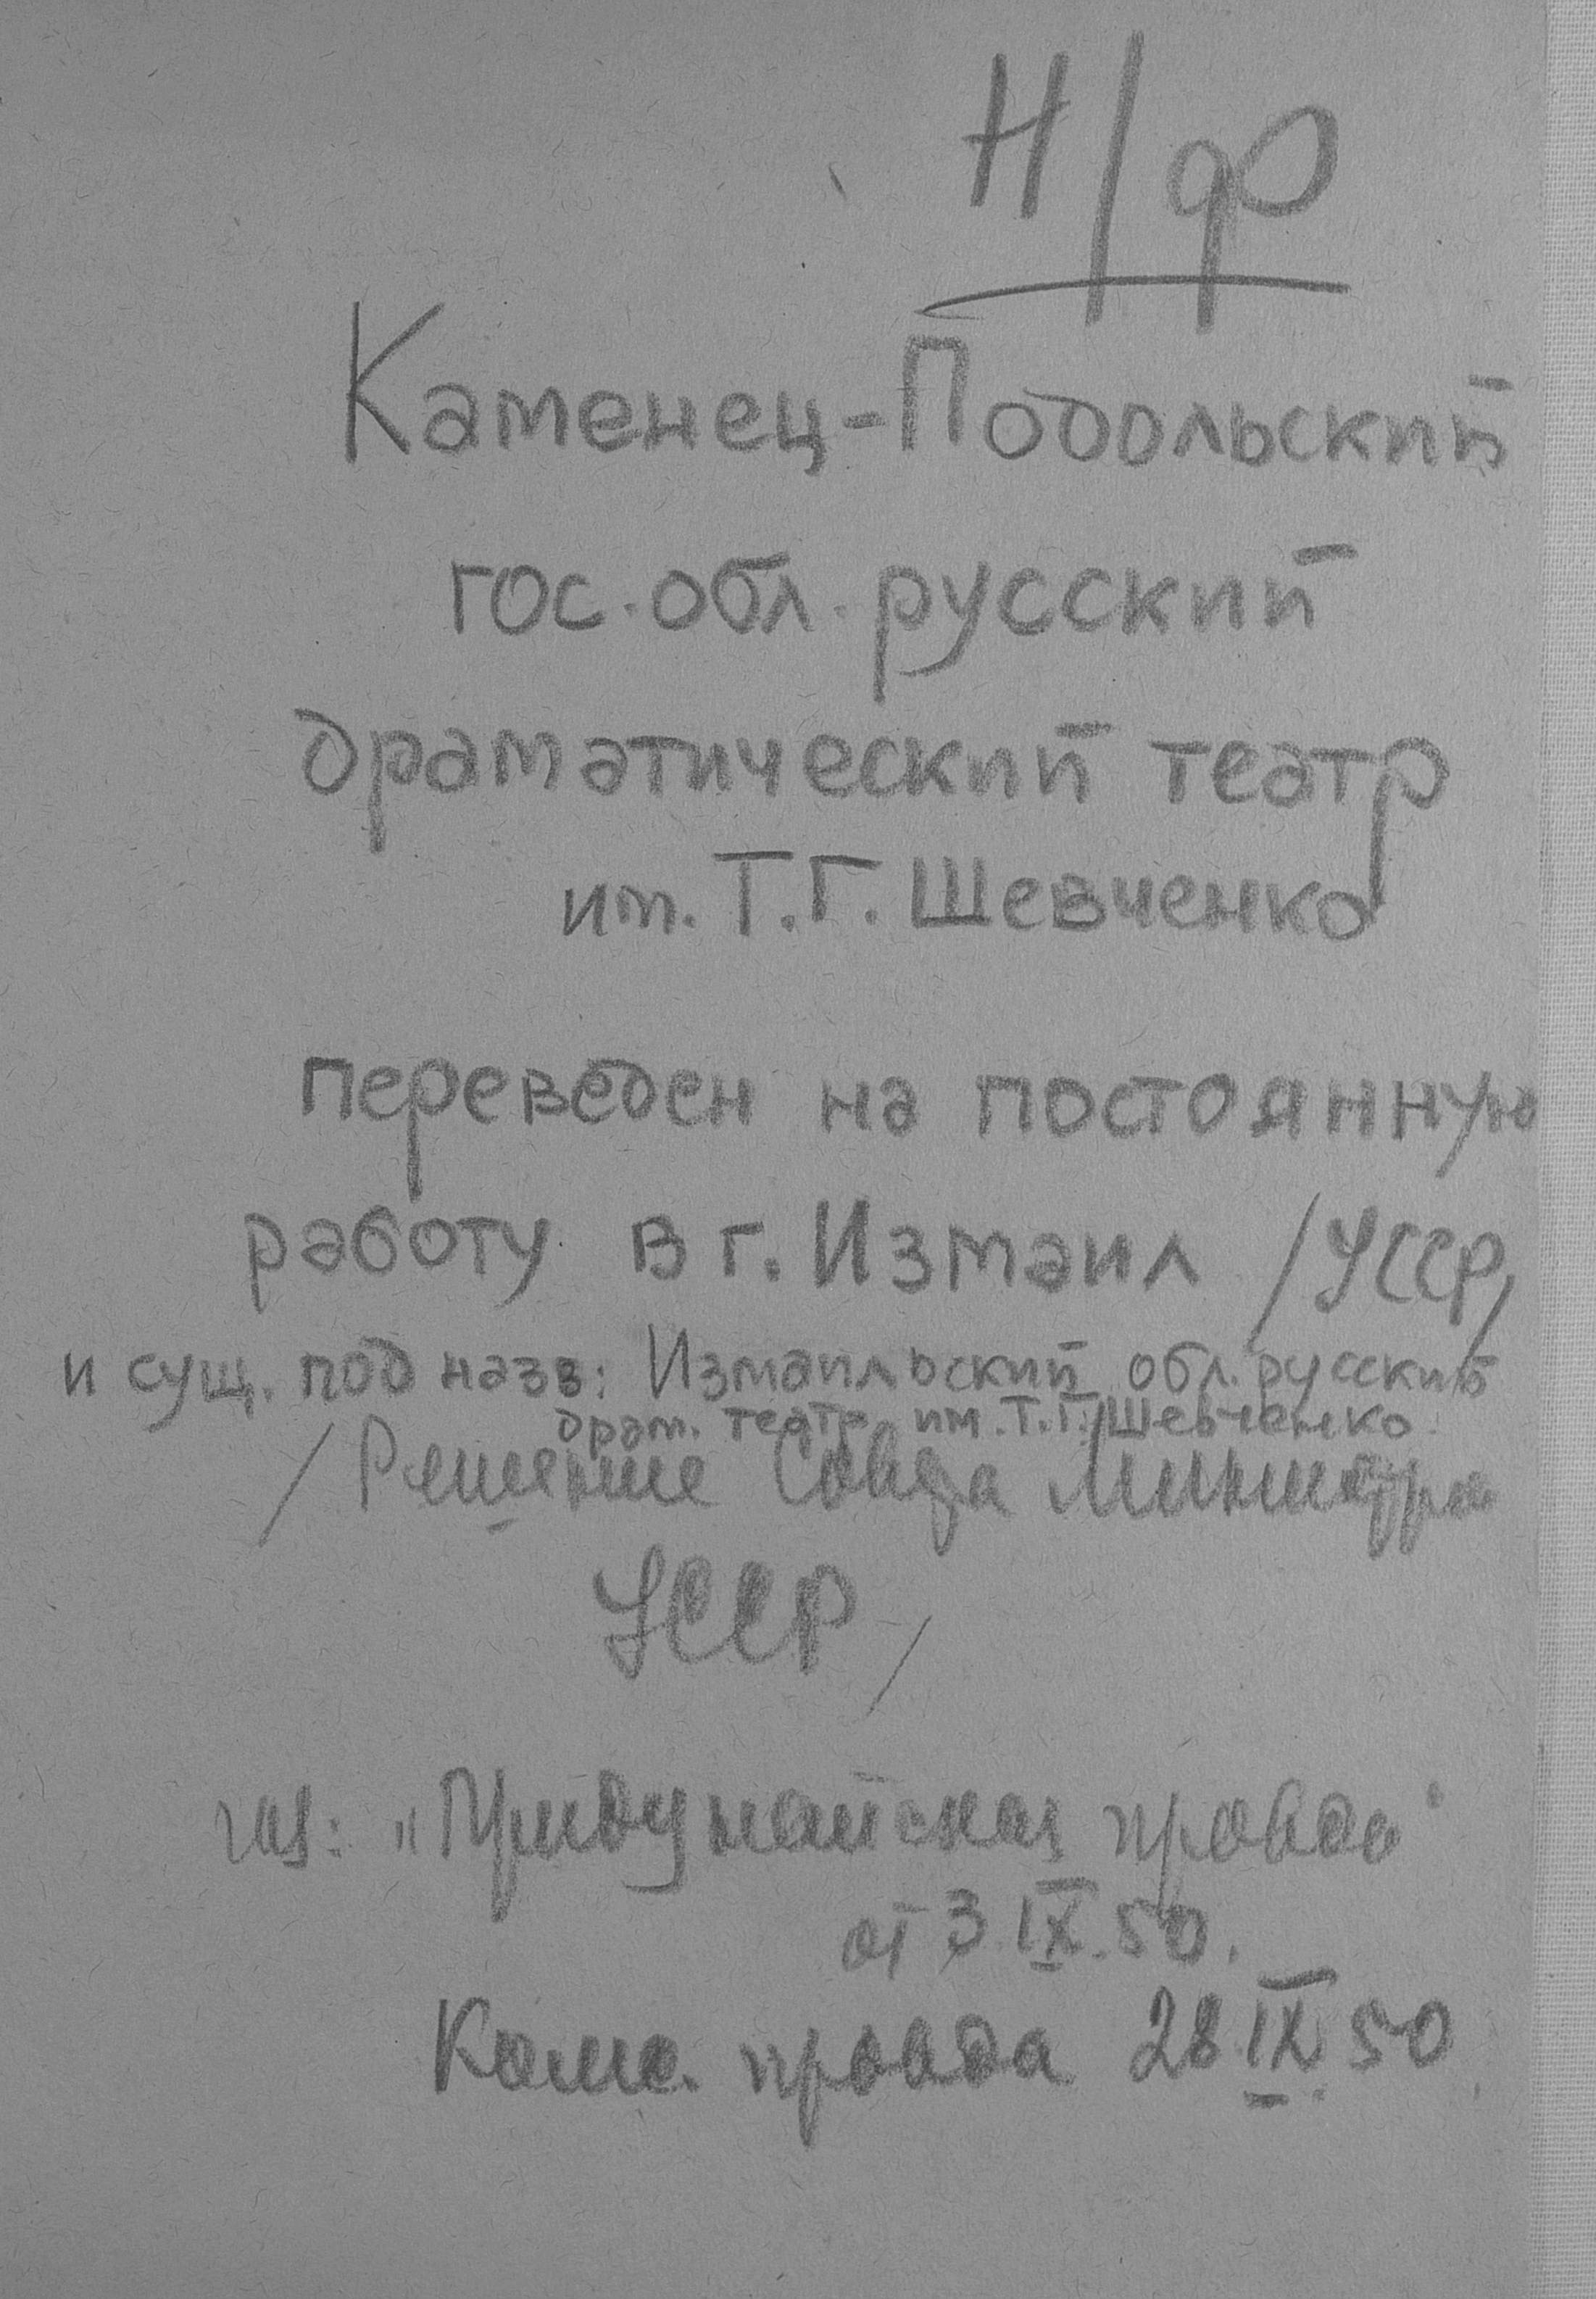 Н/ф
Каменец-Подольский
гос. обл. русский
драматический театр
им. Т.Г. Шевченко
переведен на постоянную
работу в г. Измаил /УССР/
и сущ. под назв: Измаильский обл. русский
драм. театр им. Т.Г. Шевченко
/Решение Совета Министров
УССР/
"Придунайская правда"
от 3.IX.50.
правда 28 IX 50